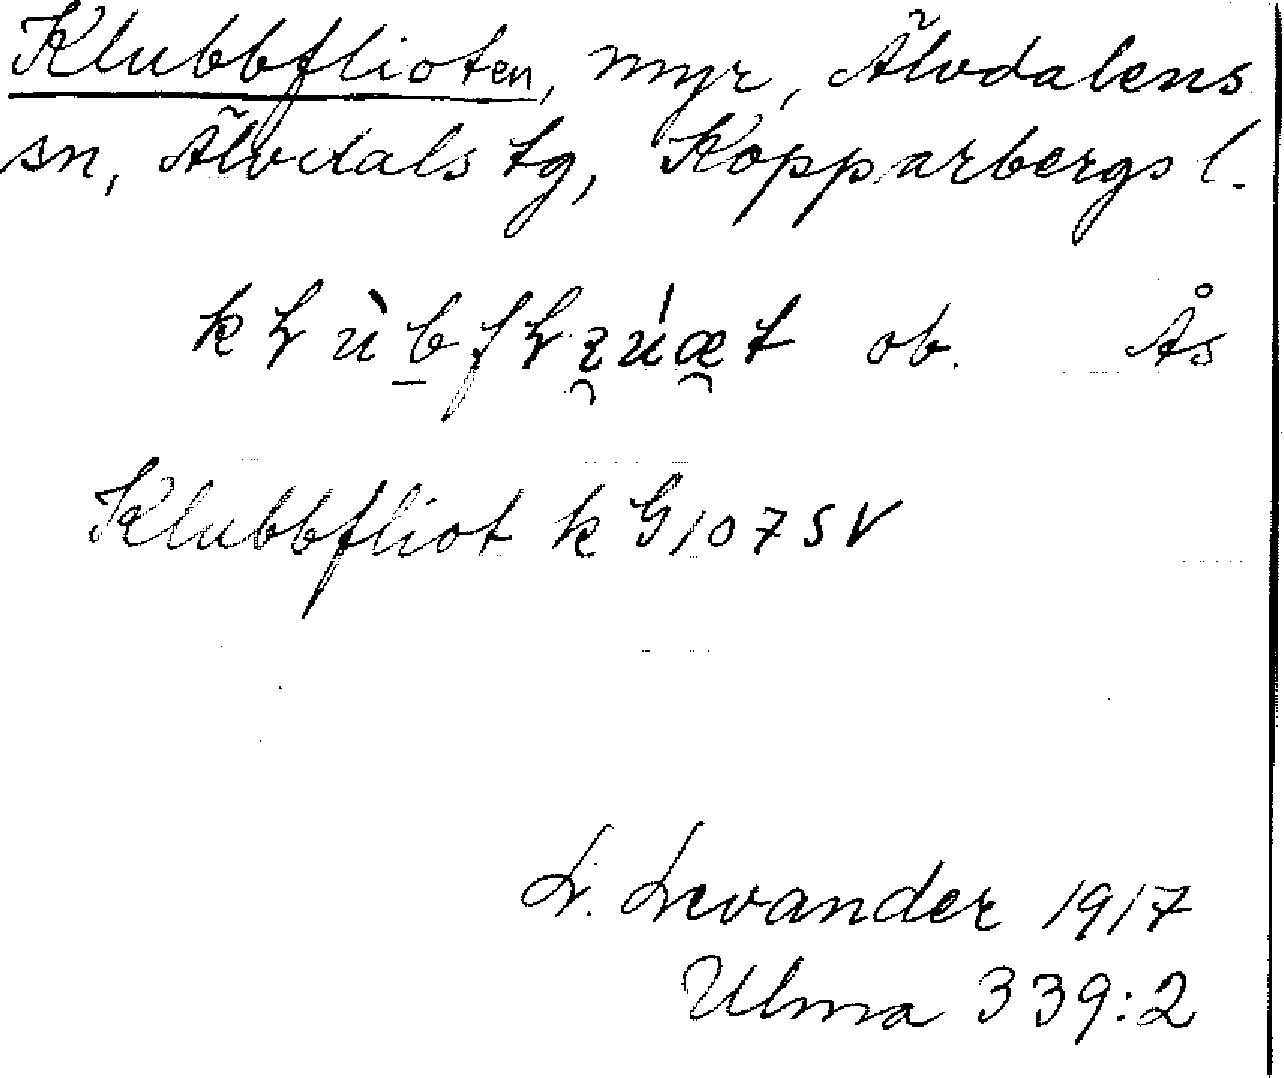 Klubbflioten, myr, Älvdalens
sn, Älvdals tg, Kopparbergs l.
ob. Ås
Klubbfliot k G107 SV
L. Levander 1917
Ulma 339:2